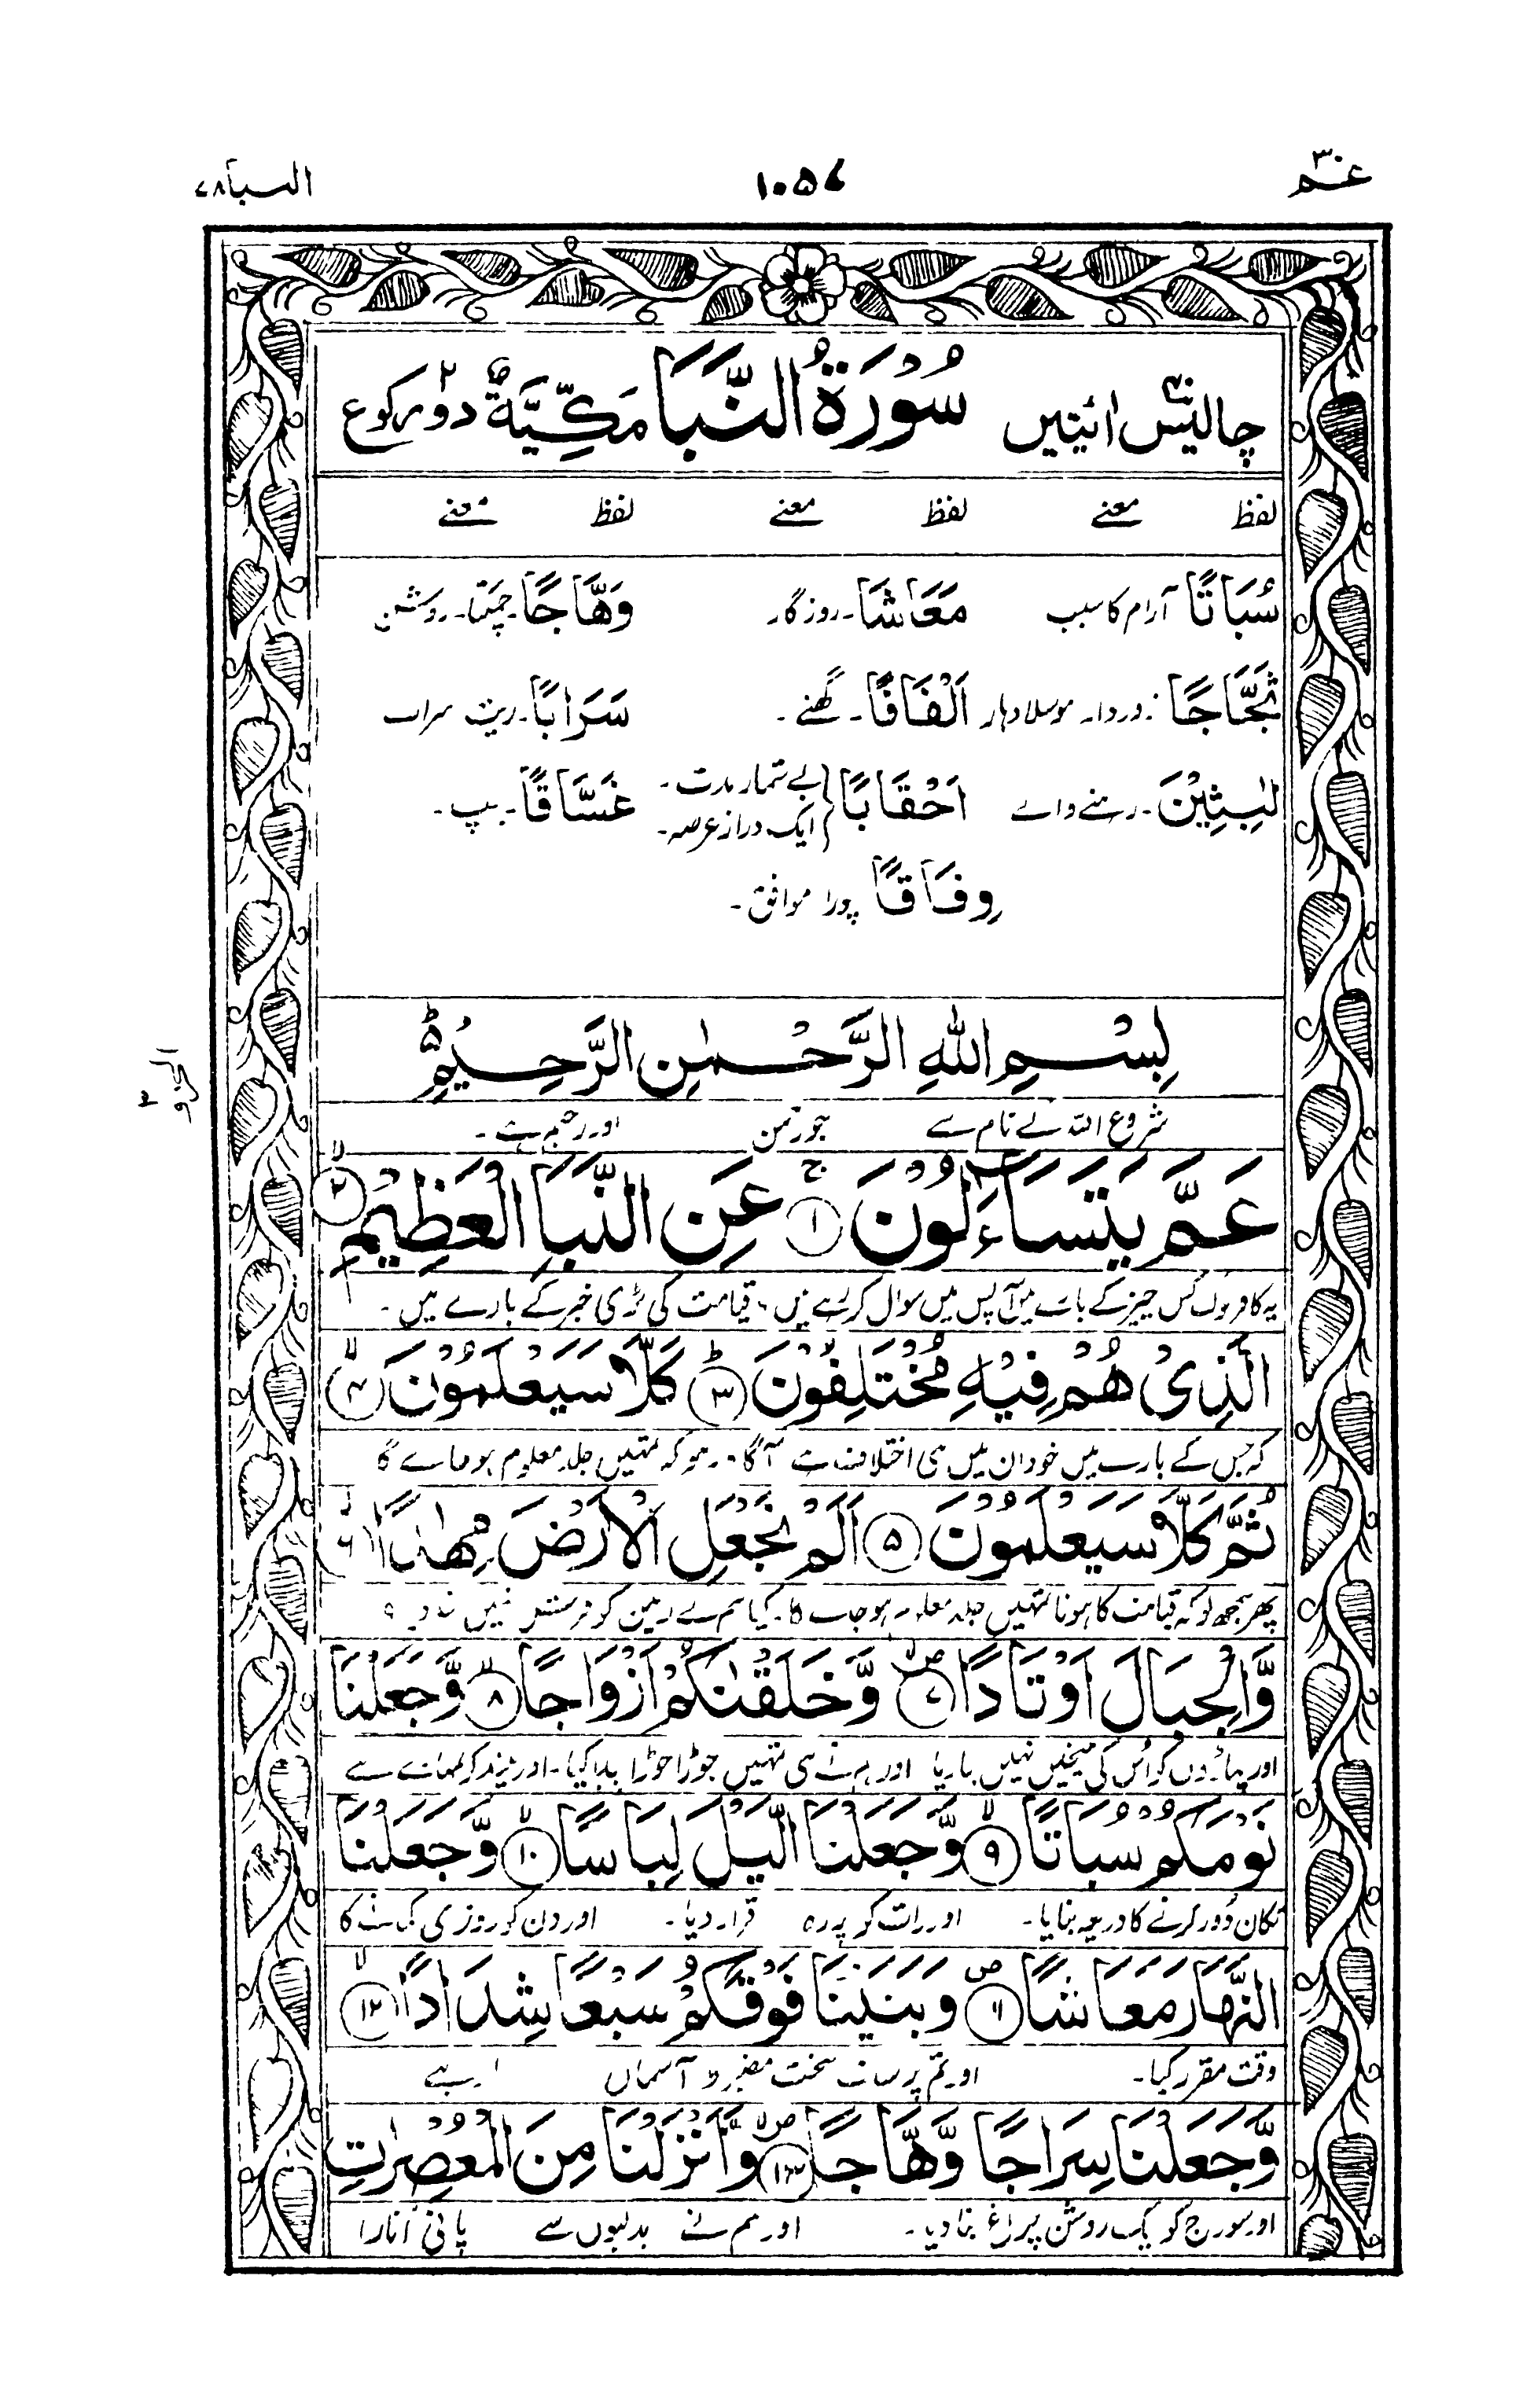 عٓمّ ۳۰
۱۰۵۷
النبأ ۷۸
چالیس اٰیتیں سُوْرَةُ النَّبَاِ مَكِّيَّةٌ دو رکوع
لفظ معنے لفظ معنے لفظ معنے
سُبَاتًا آرام کا سبب مَعَاشًا۔ روزگار وَهَّاجًا۔ چمکتا۔ روشن
ثَجَّاجًا زوردار۔ موسلا دہار اَلْفَافًا۔ گھنے۔ سَرَابًا۔ ریت سراب
لٰبِثِيْنَ۔ رہنے والے اَحْقَابًا بے شمار مدت۔ ایک دراز عرصہ۔ غَسَّاقًا۔ پیپ۔
وِفَاقًا پورا موافق۔
بِسْمِ اللّٰهِ الرَّحْمٰنِ الرَّحِيْمِ
شروع اللہ کے نام سے جو رحمٰن اور رحیم ہے۔
الجزو ۳
عَمَّ يَتَسَآءَلُوْنَ ۱ عَنِ النَّبَاِ الْعَظِيْمِ ۲
یہ کافر لوگ کس چیز کے بارے میں آپس میں سوال کر رہے ہیں، قیامت کی بڑی خبر کے بارے میں۔
الَّذِيْ هُمْ فِيْهِ مُخْتَلِفُوْنَ ۳ كَلَّا سَيَعْلَمُوْنَ ۴
کہ جس کے بارے میں خود ان میں ہی اختلاف ہے آگاہ رہو کہ تمہیں جلد معلوم ہو جائے گا
ثُمَّ كَلَّا سَيَعْلَمُوْنَ ۵ اَلَمْ نَجْعَلِ الْاَرْضَ مِهٰدًا ۶
پھر سمجھ لو کہ قیامت کا ہونا تمہیں جلد معلوم ہو جائے گا۔ کیا ہم نے زمین کو فرش نہیں
وَّالْجِبَالَ اَوْتَادًا ۷ وَّخَلَقْنٰكُمْ اَزْوَاجًا ۸ وَّجَعَلْنَا
اور پہاڑوں کو اُس کی میخیں نہیں بنا دیا اور ہم نے ہی تمہیں جوڑا جوڑا پیدا کیا۔ اور نیند کو تمہارے سے
نَوْمَكُمْ سُبَاتًا ۹ وَّجَعَلْنَا الَّيْلَ لِبَاسًا ۱۰ وَّجَعَلْنَا
تکان دُور کرنے کا ذریعہ بنایا۔ اور رات کو پردہ قرار دیا۔ اور دن کو روزی کمانے کا
النَّهَارَ مَعَاشًا ۱۱ وَبَنَيْنَا فَوْقَكُمْ سَبْعًا شِدَادًا ۱۲
وقت مقرر کیا۔ اور تم پر سات سخت مضبوط آسمان
وَّجَعَلْنَا سِرَاجًا وَّهَّاجًا ۱۳ وَّاَنْزَلْنَا مِنَ الْمُعْصِرٰتِ
اور سورج کو ایک روشن چراغ بنا دیا۔ اور ہم نے بدلیوں سے پانی اُتارا